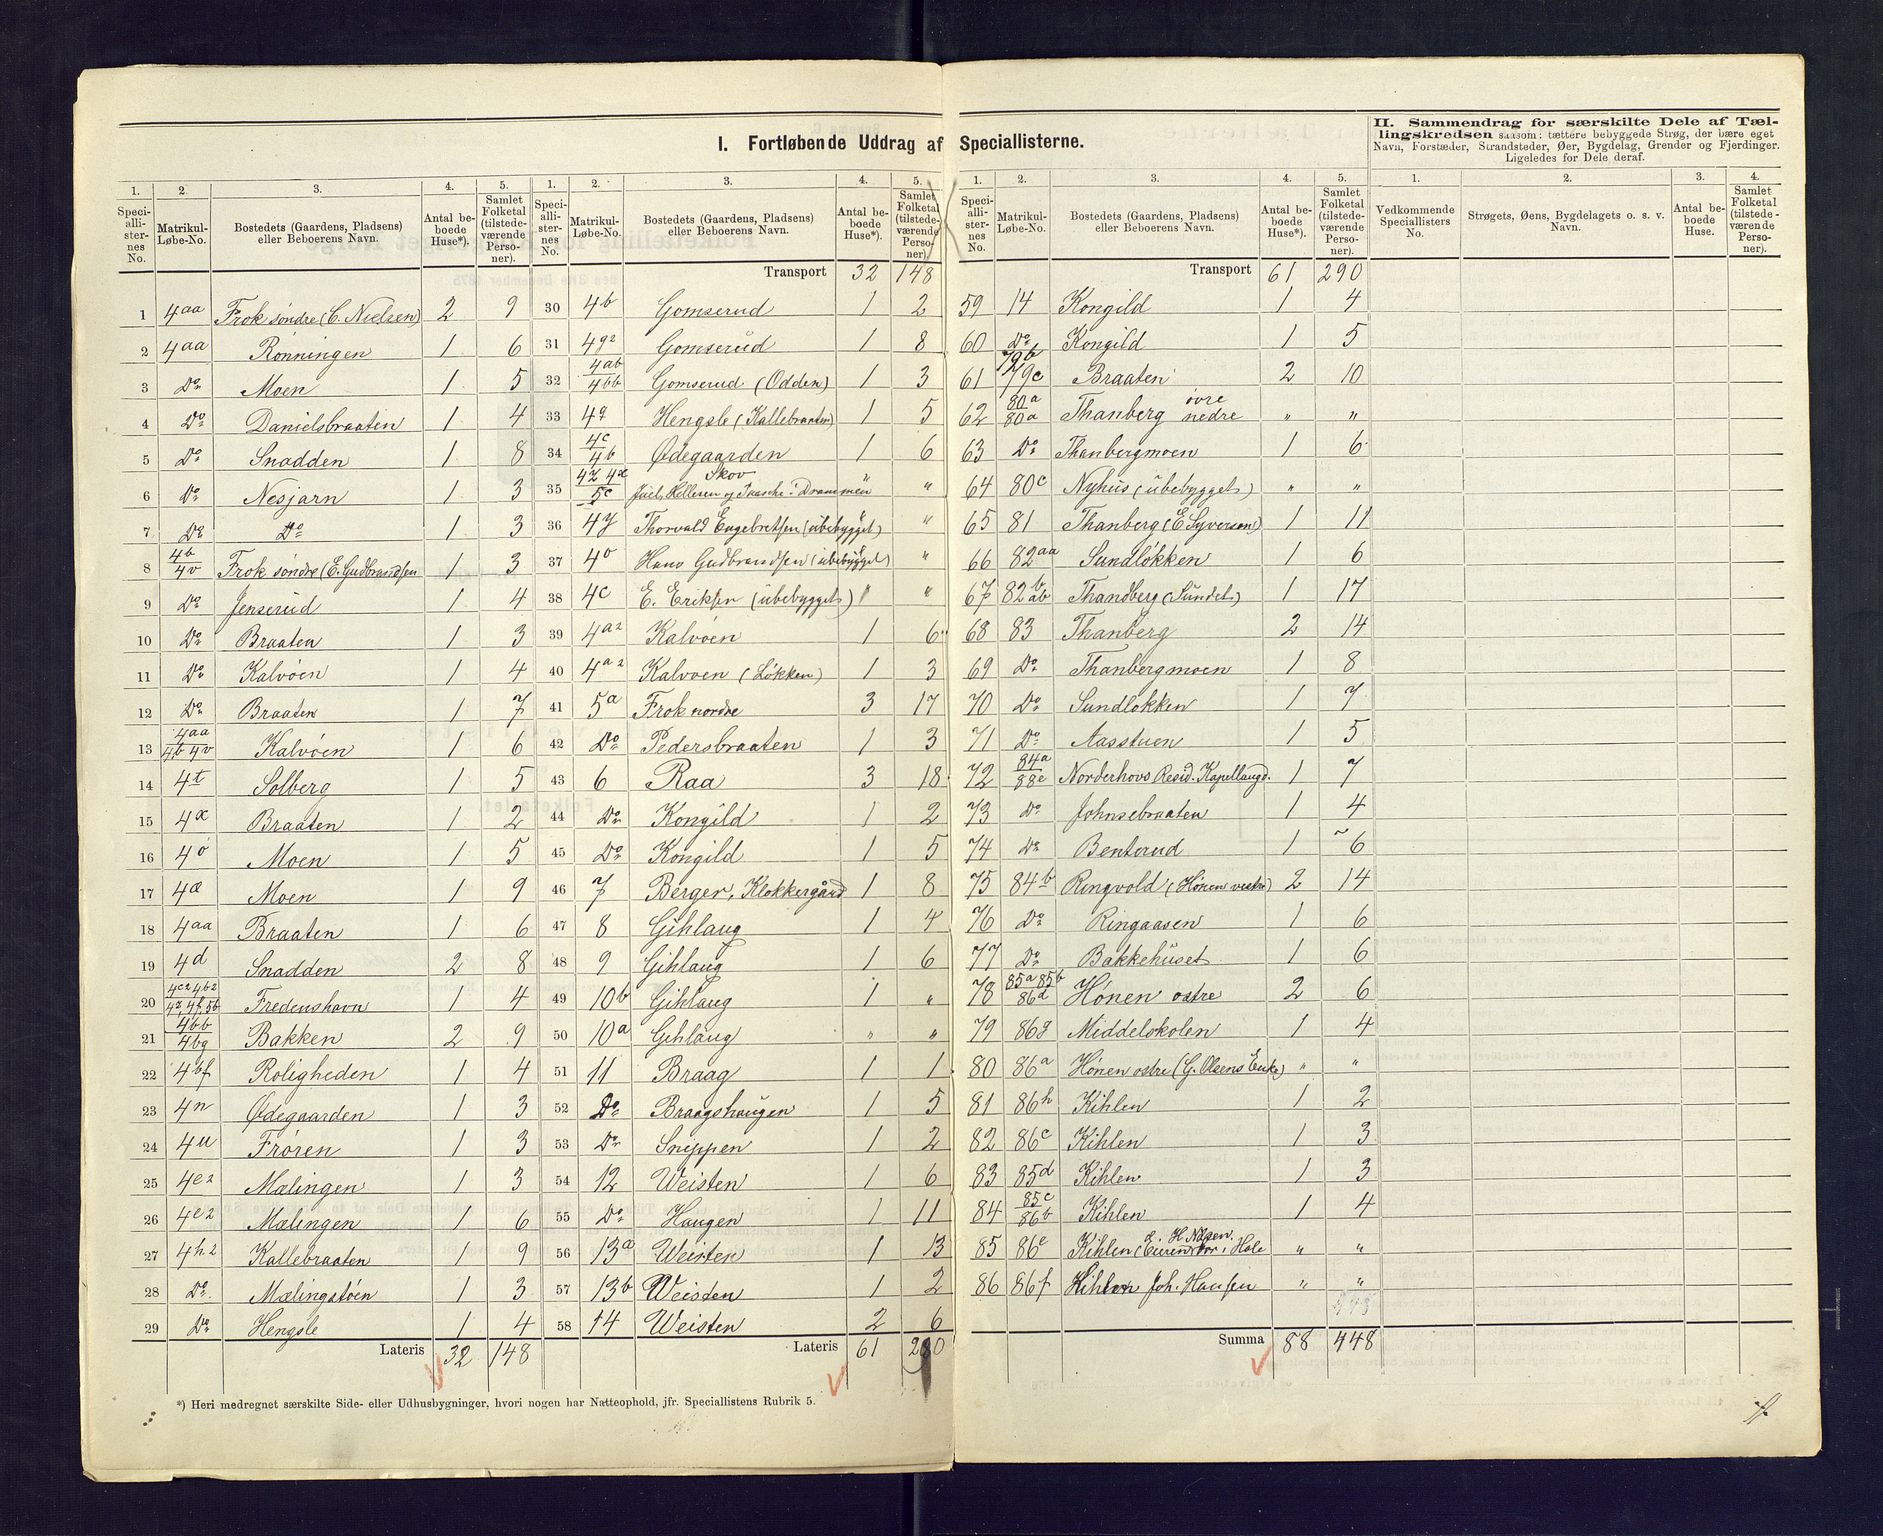 I. Fortløbende Uddrag af Speciallisterne.
II. Sammendrag for særskilte Dele af Tællingskredsen saasom: tættere bebyggede Strøg, der bære eget
Navn, Forstæder, Strandsteder, Øer, Bygdelag, Grender og Fjerdinger.
Ligeledes for Dele deraf.
1. Speciallisternes No. 2. Matrikul-Løbe-No. 3. Bostedets (Gaardens, Pladsens) eller Beboerens Navn. 4. Antal beboede Huse*). 5. Samlet Folketal (tilstedeværende Personer).
1 4aa Frok søndre (C. Nielsen) 2 9
2 4aa Rønningen 1 6
3 Do Moen 1 5
4 Do Danielsbraaten 1 4
5 Do Snadden 1 8
6 Do Nesjarn 1 3
7 Do Do 1 3
8 4b/4v Frok søndre (E. Gudbrandsen 1 3
9 Do Jenserud 1 4
10 Do Braaten 1 3
11 Do Kalvøen 1 4
12 Do Braaten 1 7
13 4aa 4b 4v Kalvøen 1 6
14 4t Solberg 1 5
15 4æ Braaten 1 2
16 4o Moen 1 5
17 4æ Moen 1 9
18 4aa Braaten 1 6
19 4d Snadden 2 8
20 Fredenshavn 1 4
21 4bb/4bg Bakken 2 9
22 4bf Roligheden 1 4
23 4n Ødegaarden 1 3
24 4u Frøren 1 3
25 4e2 Mælingen 1 3
26 4e2 Mælingen 1 6
27 4h2 Kallebraaten 1 9
28 Do Mælingstøen 1 3
29 Do Hengsle 1 4
Lateris 32 148
1. Speciallisternes No. 2. Matrikul-Løbe-No. 3. Bostedets (Gaardens, Pladsens) eller Beboerens Navn. 4. Antal beboede Huse*). 5. Samlet Folketal (tilstedeværende Personer).
Transport 32 148
30 4b Gomserud 1 2
31 4g2 Gomserud 1 8
32 4ab/4bb Gomserud (Odden) 1 3
33 4q Hengsle (Kallebraaten) 1 5
34 4c/4b Ødegaarden 1 6
35 4z 4æ/5c Skov Hellesen og Drammen " "
36 4y Thorvald Engebretsen (ubebygget) "
37 4o Hans Gudbrandsen (ubebygget) "
38 4c E. Eriksen (ubebygget) " "
39 4a2 Kalvøen 1 6
40 4a2 Kalvøen (Løkken) 1 3
41 5a Frok nordre 3 17
42 Do Pedersbraaten 1 3
43 6 Raa 3 18
44 Do Kongild 1 2
45 Do Kongild 1 5
46 7 Berger, Klokkergård 1 8
47 8 Gihlaug 1 4
48 9 Gihlaug 1 6
49 10b Gihlaug 1 "
50 10a Gihlaug " "
51 11 Braag 1 1
52 Do Braagshaugen 1 5
53 Do Snippen 1 2
54 12 Weisten 1 6
55 Do Haugen 1 11
56 13a Weisten 1 13
57 13b Weisten 1 2
58 14 Weisten 2 6
Lateris 61 290
*) Heri medregnet særskilte Side- eller Udhusbygninger, hvori nogen har Natteophold, jfr. Speciallistens Rubrik 5.
1. Speciallisternes No. 2. Matrikul-Løbe-No. 3. Bostedets (Gaardens, Pladsens) eller Beboerens Navn. 4. Antal beboede Huse*). 5. Samlet Folketal (tilstedeværende Personer).
Transport 61 290
59 14 Kongild 1 4
60 Do Kongild 1 5
61 79b 79c Braaten 2 10
62 80a/80a Thanberg øvre nedre " "
63 Do Thanbergmoen 1 6
64 80c Nyhus (ubebygget) " "
65 81 Thanberg (E Syversen) 1 11
66 82aa Sundløkken 1 6
67 82b ab Thandberg (Sundet) 1 17
68 83 Thanberg 2 14
69 Do Thanbergmoen 1 8
70 Do Sundløkken 1 7
71 Do Aasstuen 1 5
72 84a/88e Norderhovs Resid. Kapellangd. 1 7
73 Do Johnsebraaten 1 4
74 Do Benterud 1 6
75 84b Ringvold (Hønen vestre) 2 14
76 Do Ringaasen 1 6
77 Do Bakkehuset 1 6
78 85a 85b/86d Hønen østre 2 6
79 86g Middelskolen 1 4
80 86a Hønen østre (G. Olsens Enke) " "
81 86h Kihlen 1 2
82 86c Kihlen 1 3
83 85d Kihlen 1 3
84 85c/86b Kihlen 1 4
85 86e Kihlen Hole " "
86 86f Kihlen Joh. Hansen " "
Summa 88 448
1. Vedkommende Speciallisters No. 2. Strøgets, Øens, Bygdelagets o. s. v. Navn. 3. Antal beboede Huse. 4. Samlet Folketal (tilstedeværende Personer).